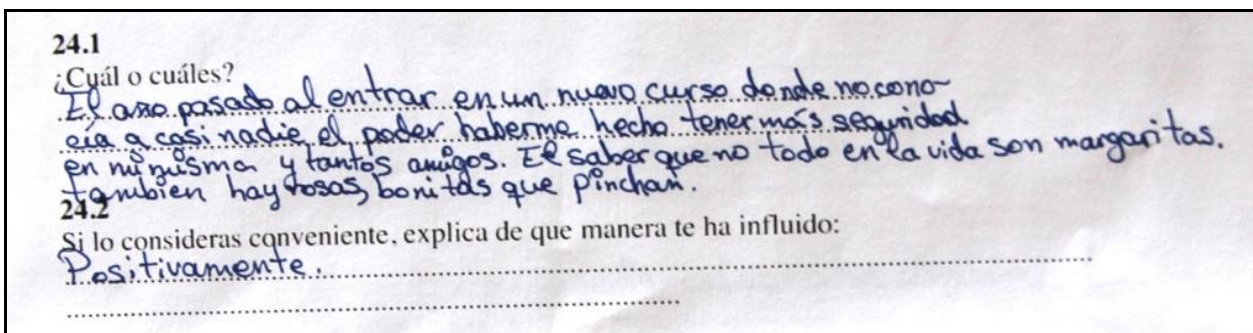 24.1
¿Cuál o cuáles?
El año pasado al entrar en un nuevo curso donde no cono-
cía a casi nadie el poder haberme hecho tener más seguridad
en mi misma y tantos amigos. El saber que no todo en la vida son margaritas.
tambien hay rosas, bonitas que pinchan.
24.2
Si lo consideras conveniente, explica de que manera te ha influido:
Positivamente.